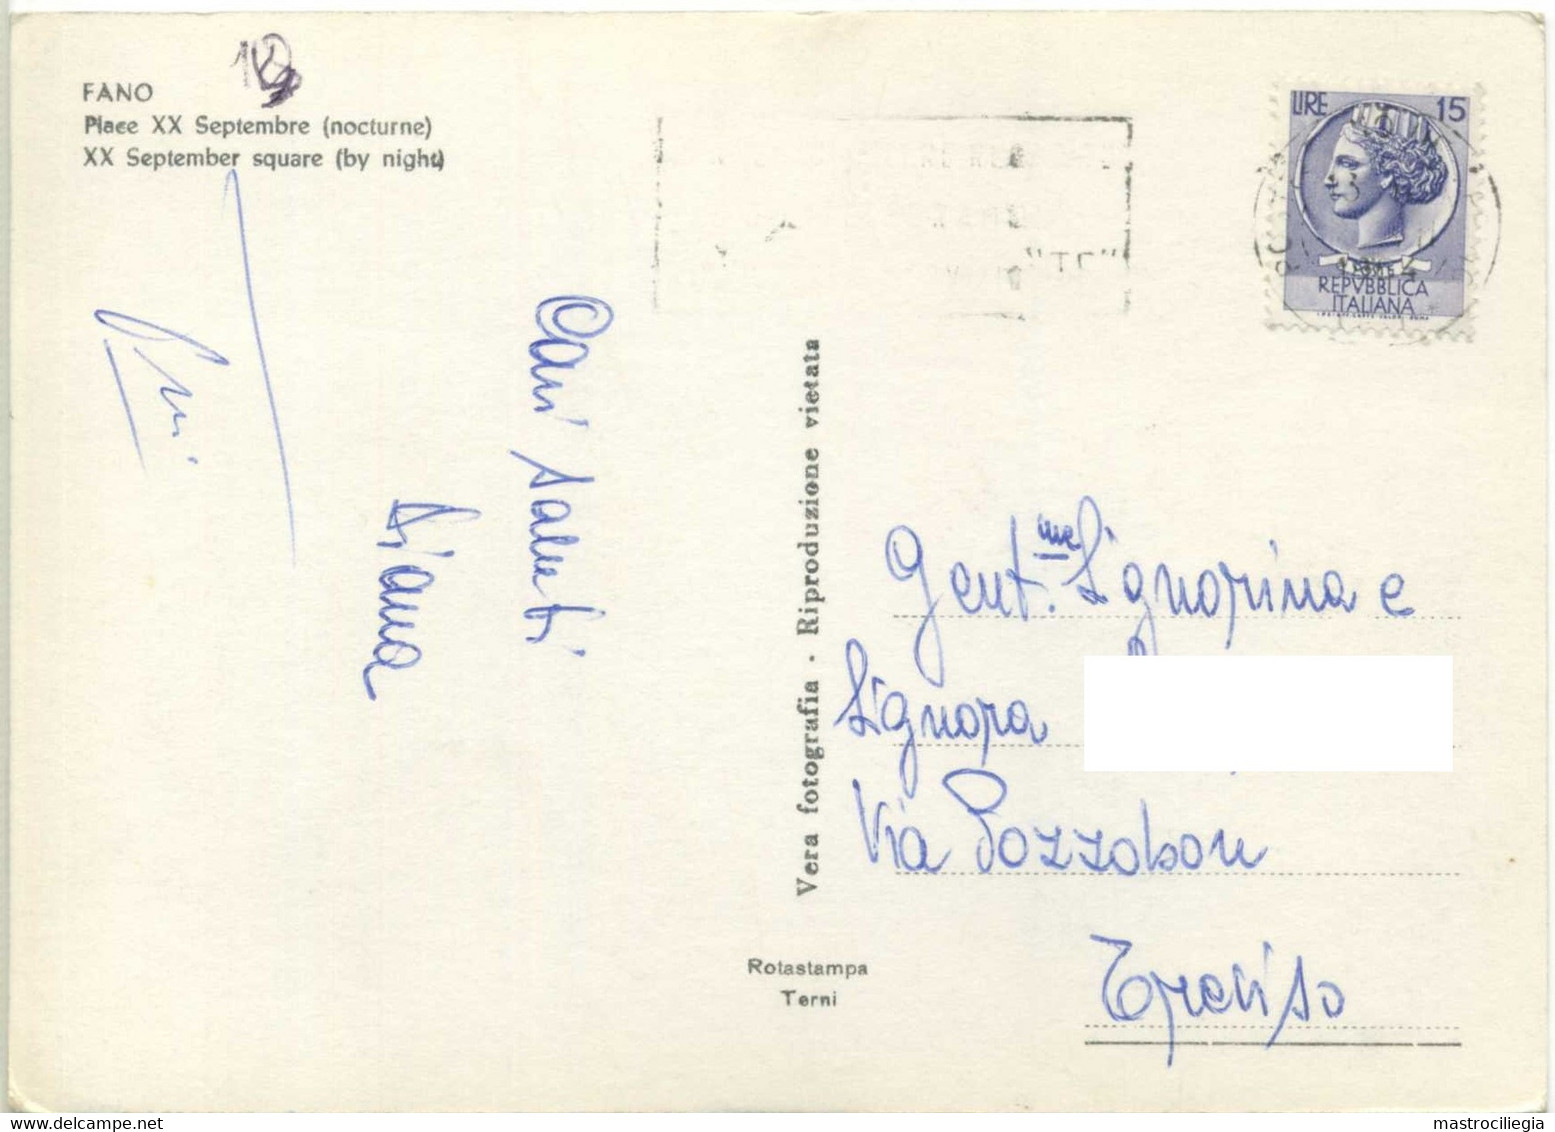 FANO
Place XX Septembre (nocturne)
XX September square (by night)
LIRE 15
REPVBBLICA
ITALIANA
Cari saluti
Diana
Vera fotografia - Riproduzione vietata
Gent.me Signorina e
Signora
Via Pozzobon
Treviso
Rotastampa
Terni
mastrociliegia